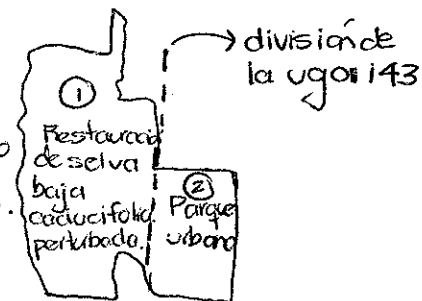 división de
la ugari43
①
Restauració
de selva
baja
caducifolia
perturbada.
②
Parque
urbano